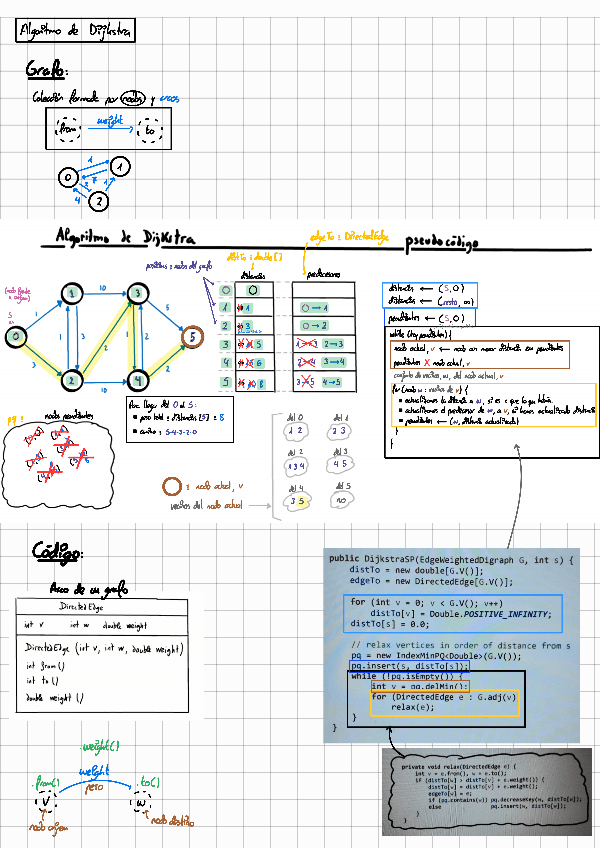 Algoritmo de Dijkstra
Grafo:
Colección formada por nodos y arcos
from weight to
1
0 1
7
3
4 1
2
Algoritmo de Dijkstra
edgeTo : DirectedEdge
pseudocódigo
distTo : double[]
posiciones = nodos del grafo
distancias
predecesores
0 0
1 1 0→1
2 3 0→2
3 5 2→3
4 6 3→4
5 8 4→5
(nodo fuente u origen)
S
0 1 2 3 4 5
10
10
pq:
nodos pendientes
Para llegar del 0 al 5:
peso total = distancias [5] = 8
camino = 5-4-3-2-0
: nodo actual, v
vecinos del nodo actual
del 0
1 2
del 1
2 3
del 2
1 3 4
del 3
4 5
del 4
3 5
del 5
no
distancias ← (S,0)
distancias ← (resto, ∞)
pendientes ← (S,0)
while (hay pendientes) {
nodo actual, v ← nodo con menor distancia en pendientes
pendientes X nodo actual, v
conjunto de vecinos, w, del nodo actual, v
for (nodo w : vecinos de v) {
pendientes ← (w, distancia actualizada)
}
}
Código:
Arco de un grafo
DirectedEdge
int v int w double weight
DirectedEdge (int v, int w, double weight)
int from ()
int to ()
double weight ()
.weight()
.from() weight .to()
peso
v w
nodo origen
nodo destino
public DijkstraSP(EdgeWeightedDigraph G, int s) {
distTo = new double[G.V()];
edgeTo = new DirectedEdge[G.V()];
for (int v = 0; v < G.V(); v++)
distTo[v] = Double.POSITIVE_INFINITY;
distTo[s] = 0.0;
// relax vertices in order of distance from s
pq = new IndexMinPQ<Double>(G.V());
pq.insert(s, distTo[s]);
while (!pq.isEmpty()) {
int v = pq.delMin();
for (DirectedEdge e : G.adj(v)
relax(e);
}
}
private void relax(DirectedEdge e) {
int v = e.from(), w = e.to();
if (distTo[w] > distTo[v] + e.weight()) {
distTo[w] = distTo[v] + e.weight();
edgeTo[w] = e;
if (pq.contains(w)) pq.decreaseKey(w, distTo[w]);
else pq.insert(w, distTo[w]);
}
}